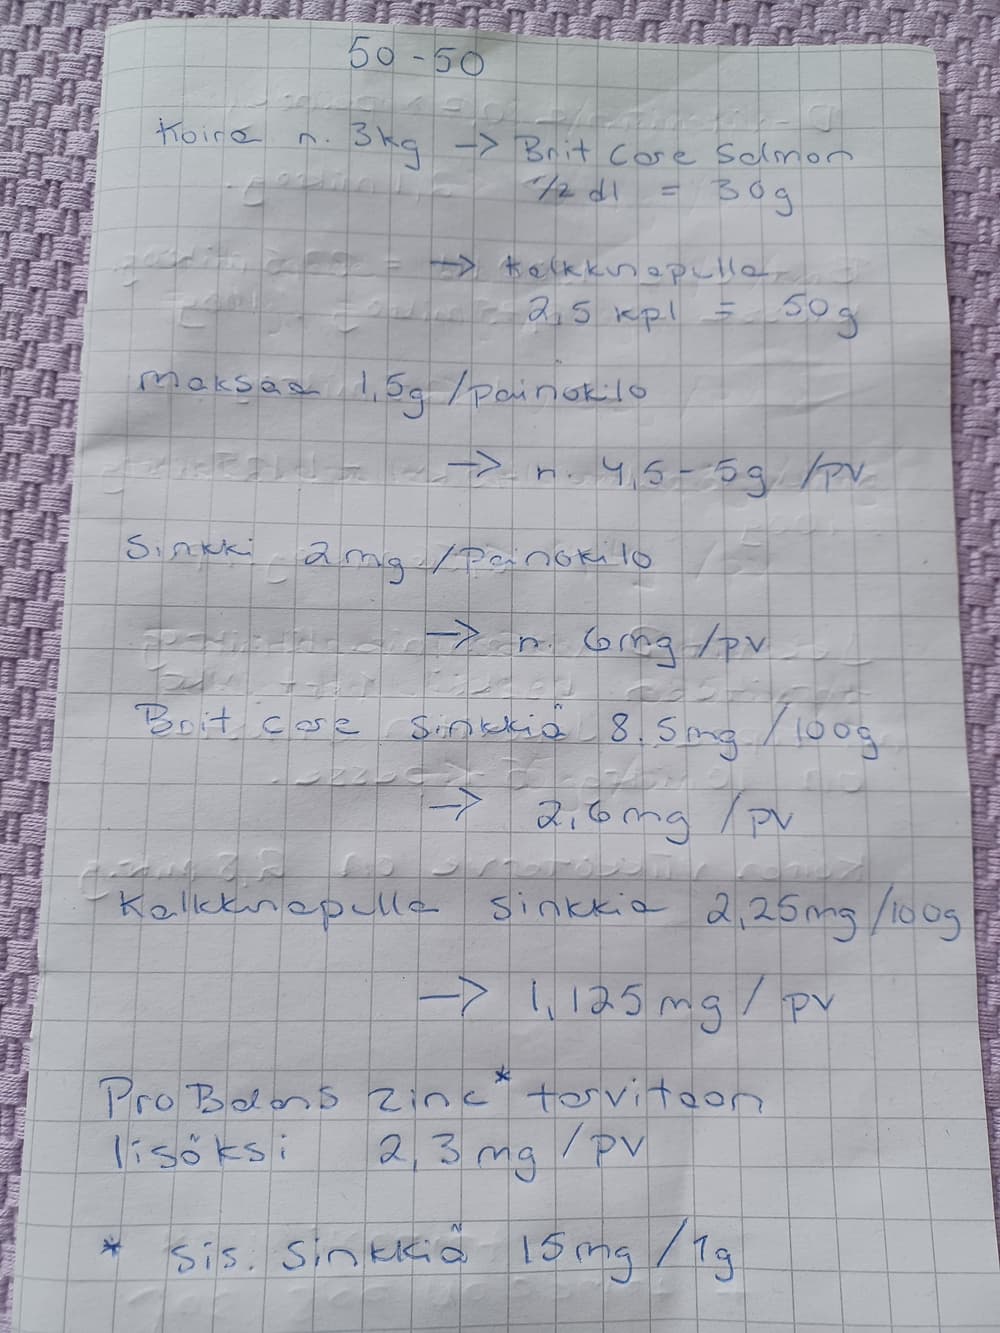 50-50
Koira n. 3kg → Brit Care Salmon
1/2 dl = 30g
→ Kalkkunapulla
2,5 kpl = 50g
Maksaa 1,5g /painokilo
→ n. 4,5-5g /pv
Sinkki 2mg /painokilo
→ n. 6mg /pv
Brit care sinkkiä 8,5mg /100g
→ 2,6mg /pv
Kalkkunapulla sinkkiä 2,25mg/100g
→ 1,125mg / pv
ProBalans Zinc* tarvitaan
lisäksi 2,3mg /pv
* sis. sinkkiä 15mg /1g